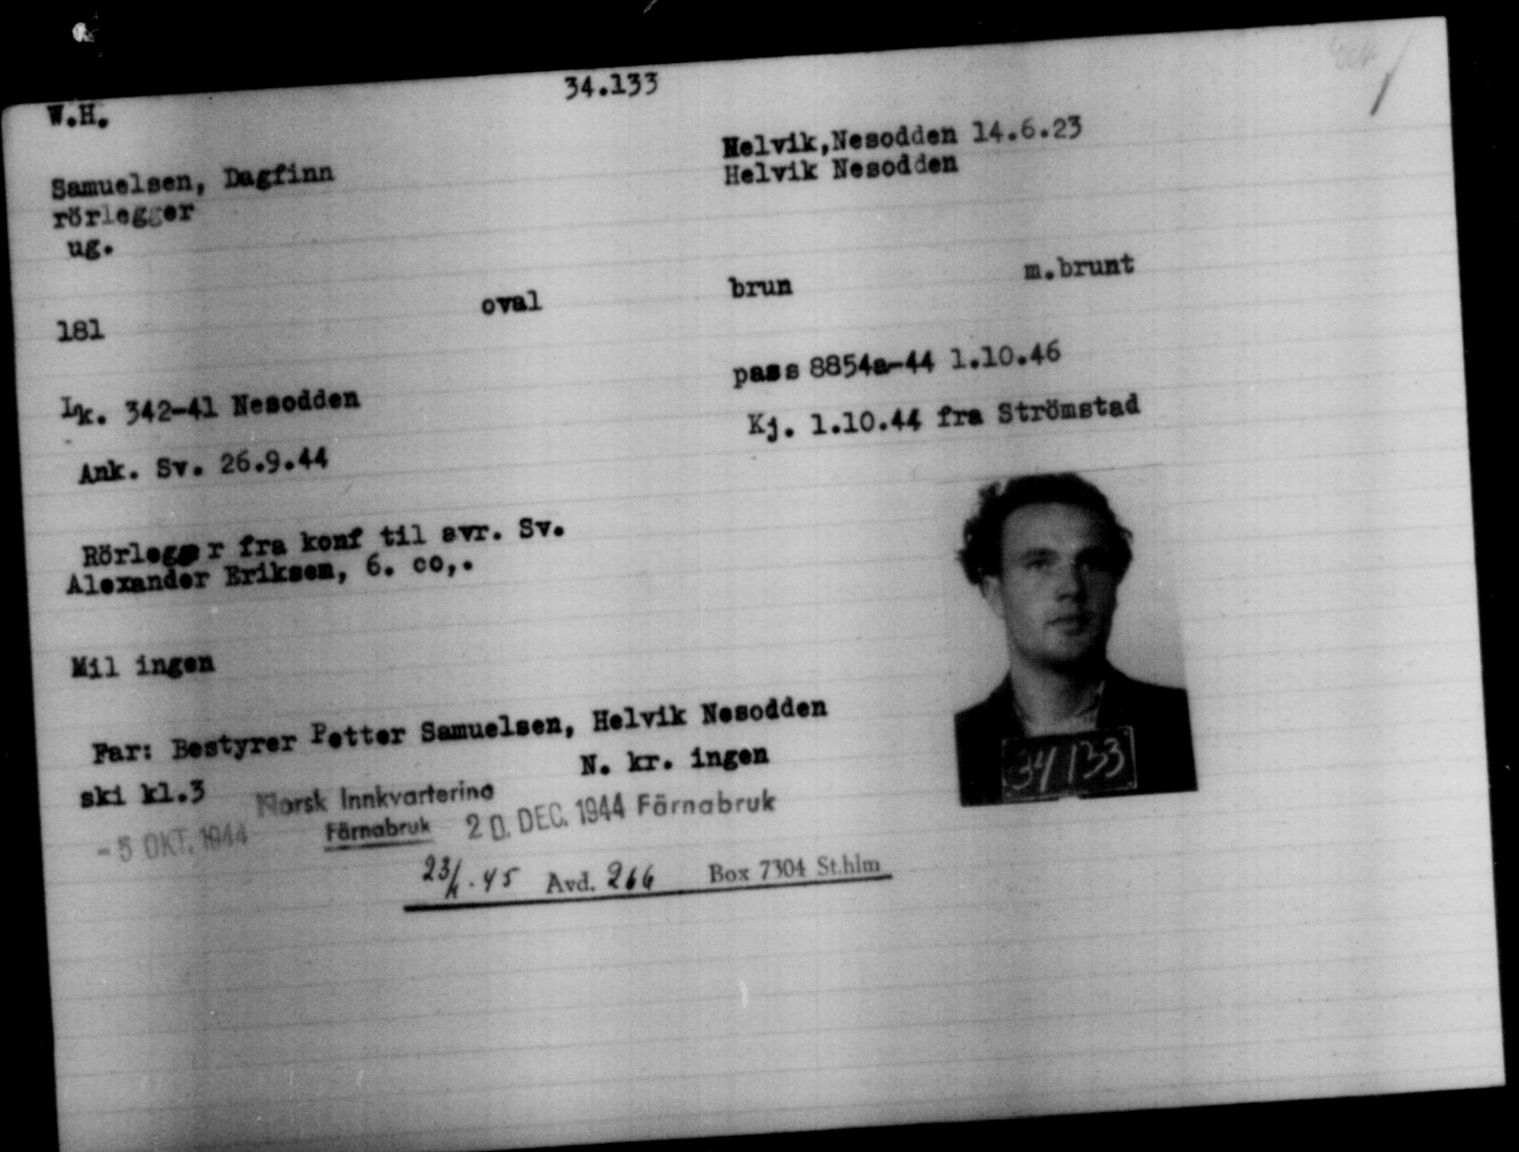 34.133
W.H.
Helvik, Nesodden 14.6.23
Samuelsen, Dagfinn
Helvik Nesodden
rörlegger
ug.
181
oval
brun
m.brunt
Lk. 342-41 Nesodden
pass 8854a-44 1.10.46
Ank. Sv. 26.9.44
Kj. 1.10.44 fra Strömstad
Rörlegger fra konf til svr. Sv.
Alexander Eriksen, 6. co,.
Mil ingen
Far: Bestyrer Petter Samuelsen, Helvik Nesodden
ski kl.3
N. kr. ingen
Norsk Innkvartering
- 5 OKT. 1944
Färnabruk
20. DEC. 1944 Färnabruk
Avd. 266 Box 7304 St.hlm
34133